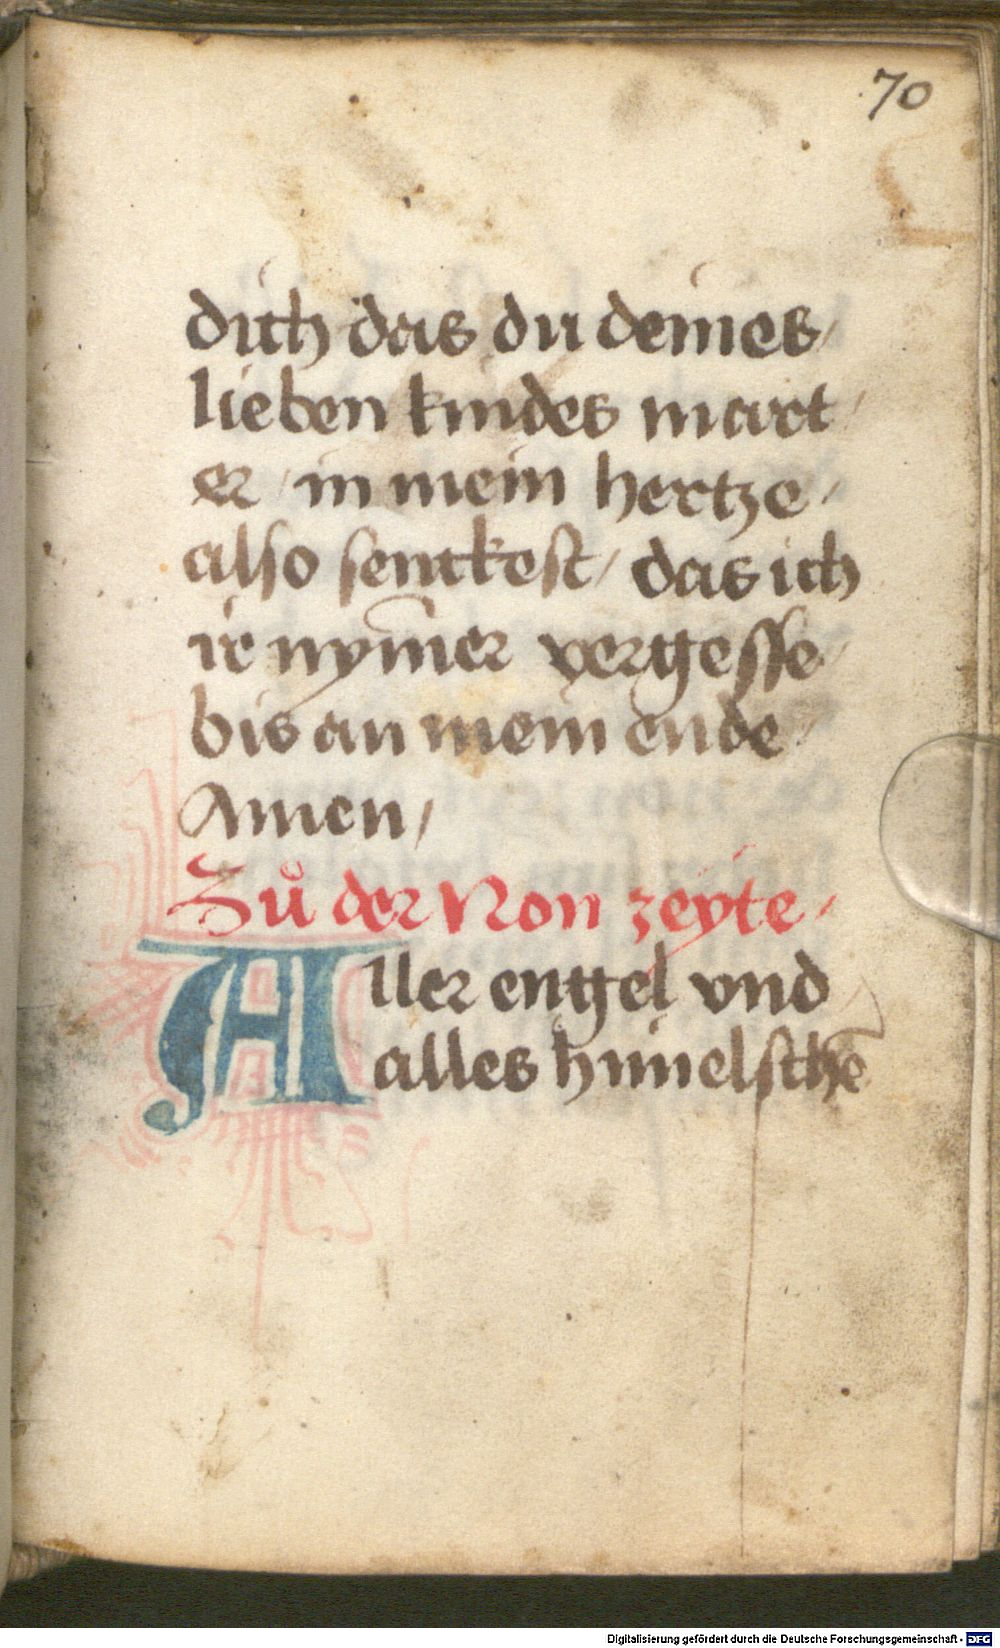 70
dich das du deines /
lieben kindes mart /
er / in mein hertze /
also senckest / das ich
ir nym̄er vergesse /
bis an mein ende /
Amen /
Zů der Non zeyte /
Aller engel vnd
alles himelschē
Digitalisierung gefördert durch die Deutsche Forschungsgemeinschaft - DFG